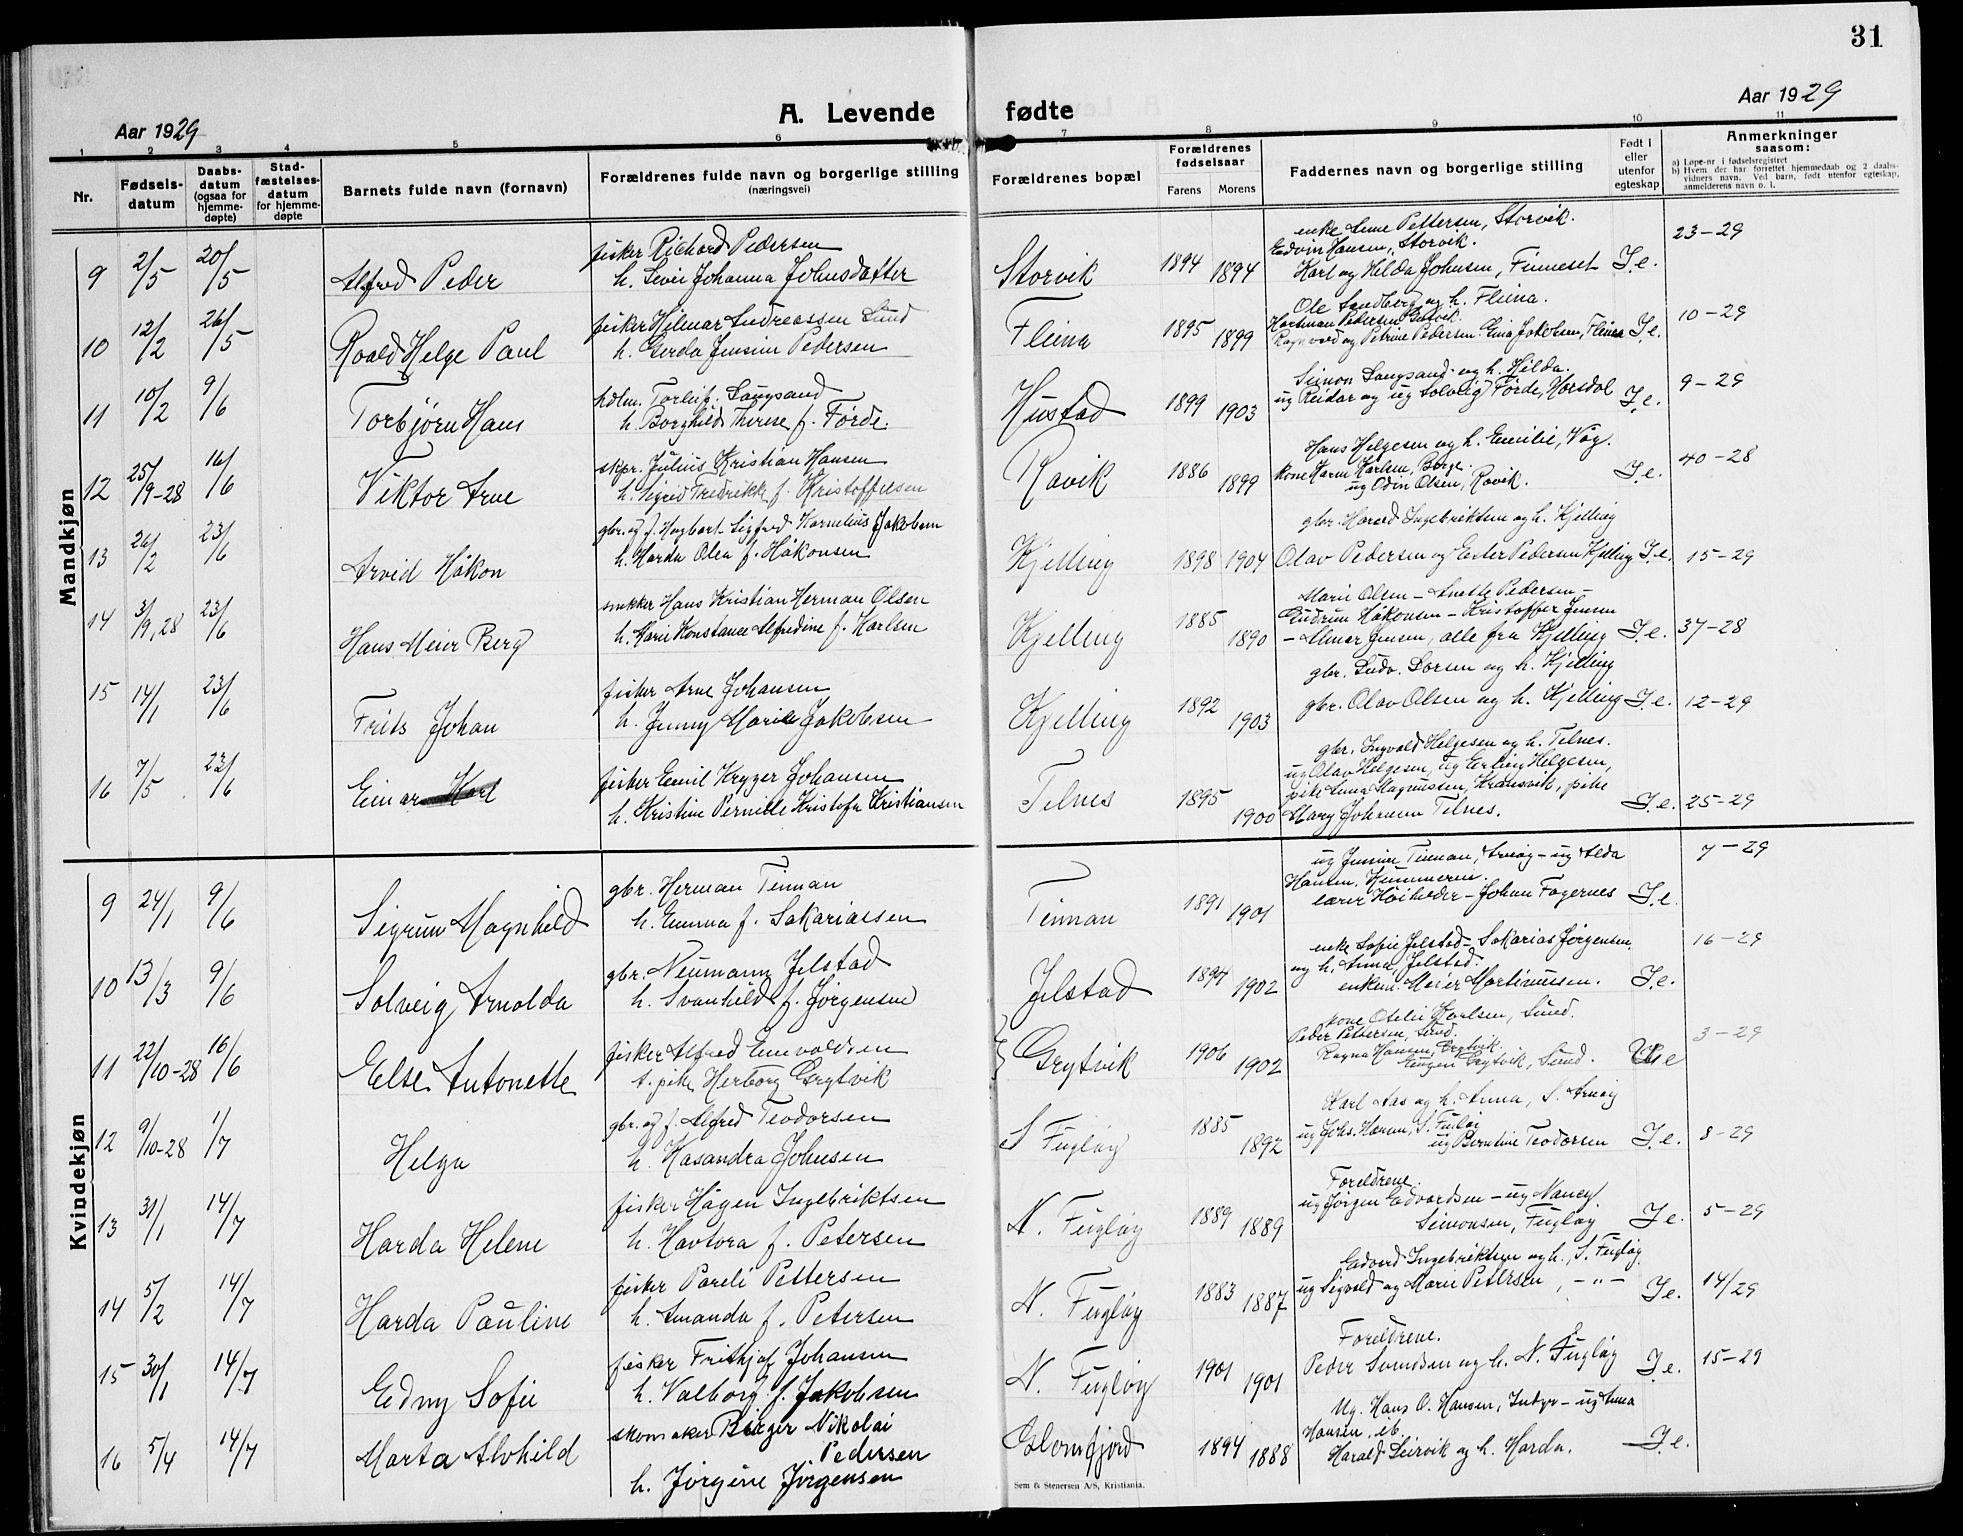 31
Aar 1929
A. Levende fødte
Aar 1929
1 2 3 4 5 6 7 8 9 10 11
Nr.
Fødsels-
datum
Daabs-
datum
(ogsaa for
hjemme-
døpte)
Stad-
fæstelses-
datum
for hjemme-
døpte
Barnets fulde navn (fornavn)
Forældrenes fulde navn og borgerlige stilling
(næringsvei)
Forældrenes bopæl
Forældrenes
fødselsaar
Farens Morens
Faddernes navn og borgerlige stilling
Født i
eller
utenfor
egteskap
Anmerkninger
saasom:
a) Løpe-nr i fødselsregistret
b) Hvem der har forrettet hjemmedaab og 2 daabs-
vidners navn. Ved barn, født utenfor egteskap,
anmelderens navn o. l.
Mandkjøn
9 2/5 20/5 Alfred Peder
fisker Richard Pedersen
h. Johanna Johnsdatter
Storvik 1894 1894
enke Pettersen, Storvik.
Edvin Hansen, Storvik.
Karl og Hilda Johnsen, Finneset I.e. 23-29
10 12/2 26/5 Roald Helge Paul
fisker Hilmar Andreassen Lund
h. Gerda Jensine Pedersen
Fleina 1895 1899
Ole Sandberg og h. Fleina.
Hartman Pedersen
Ragnvard og Petrine Pedersen Jakobsen, Fleina I.e. 10-29
11 10/2 9/6 Torbjørn Hans
Torleif Langsand
h. Borghild Therese f. Førde.
Hustad 1899 1903
Simon Langsand og h. Hilda.
ug Reidar og ug Solveig Førde, Horsdal I.e. 9-29
12 25/9-28 16/6 Viktor Arne
skpr. Julius Kristian Hansen
h. Sigrid Fredrikke f. Kristoffersen
Ravik 1886 1899
Hans Helgesen og h. Emilie, Våg.
kone Karlsen,
ug Odin Olsen, Ravik. I.e. 40-28
13 26/2 23/6 Arvid Håkon
gbr. og f. Hagbart Sigfred Kornelius Jakobsen
h. Harda Olea f. Håkonsen
Kjelling 1898 1904
gbr. Harard Ingebriktsen og h. Kjelling
Olav Pedersen og Ester Pedersen Kjelling I.e. 15-29
14 3/9, 28 23/6 Hans Meier Berg
snekker Hans Kristian Herman Olsen
h. Marie Konstance Alfredine f. Karlsen
Kjelling 1885 1890
Marie Olsen - Anette Pedersen -
Gudrun Håkonsen - Kristoffer Jensen
- Elmar Jensen, alle fra Kjelling I.e. 37-28
15 14/1 23/6 Frits Johan
fisker Arne Johansen
h. Jenny Marie Jakobsen
Kjelling 1892 1903
gbr. Ludv. Larsen og h. Kjelling
gbr. Olav Olsen og h. Kjelling I.e. 12-29
16 7/5 23/6 Einar
fisker Emil Kryger Johansen
h. Kristine Pernille Kristofa Kristiansen
Telnes 1895 1900
gbr. Ingvald Helgesen og h. Telnes.
ug Olav Helgesen, ug Erling Helgesen,
pike Anna Magnussen, Kransvik, pike
Mary Johansen Telnes. I.e. 25-29
Kvindekjøn
9 24/1 9/6 Sigrun Magnhild
gbr. Herman Tinman
h. Emma f. Sakariassen
Tinman 1891 1901
ug Jensine Tinman, Arnøy - ug Alda
Hansen,
lærer - Johan Fagernes I.e. 7-29
10 13/3 9/6 Solveig Arnolda
gbr. Neumann Jelstad
h. Svanhild f. Jørgensen
Jelstad 1894 1902
enke Sofie Jelstad - Sakarias Jørgensen,
og h. Anna, Jelstad.
enkem. Meier Martinussen. I.e. 16-29
11 22/10-28 16/6 Else Antonette
fisker Alfred Enevoldsen
t. pike Herborg Grytvik
Grytvik 1906 1902
kone Otelie Karlsen, Sund.
Peder Pettersen, Sund.
Ragna Hansen, Grytvik.
Eugen Grytvik, Sund. 3-29
12 9/10-28 1/7 Helga
gbr. og f. Alfred Teodorsen
h. Kasandra Johnsen
S Fugløy 1885 1892
Karl Aas og h. Anna, S. Arnøy
ug Johs. Hansen, S. Fugløy
ug Berntine Teodorsen I.e. 8-29
13 31/1 14/7 Harda Helene
fisker Hågen Ingebriktsen
h. Havtora f. Petersen
N. Fugløy 1889 1889
Foreldrene.
ug Jørgen Edvardsen - ug Nancy
Simonsen, Fugløy I.e. 5-29
14 5/2 14/7 Harda Pauline
fisker Pareli Pettersen
h. Amanda f. Petersen
N. Fugløy 1883 1887
Edvard Ingebriktsen og h., S. Fugløy
ug Sigvald og Marie Petersen, -"- I.e. 14/29
15 30/1 14/7 Edny Sofie
fisker Frithjof Johansen
h. Valborg f. Jakobsen
N. Fugløy 1901 1901
Foreldrene.
Peder Svendsen og h. N. Fugløy I.e. 15-29
16 5/4 14/7 Marta Alvhild
skomaker Birger Nikolai
Pedersen
h. Jørgine Jørgensen
Glomfjord 1894 1888
Ug. Hans O. Hansen, Inndyr - ug Anna
Hansen, ib.
Harald Leirvik og h. Harda. I.e.
Sem & Stenersen A/S, Kristiania.